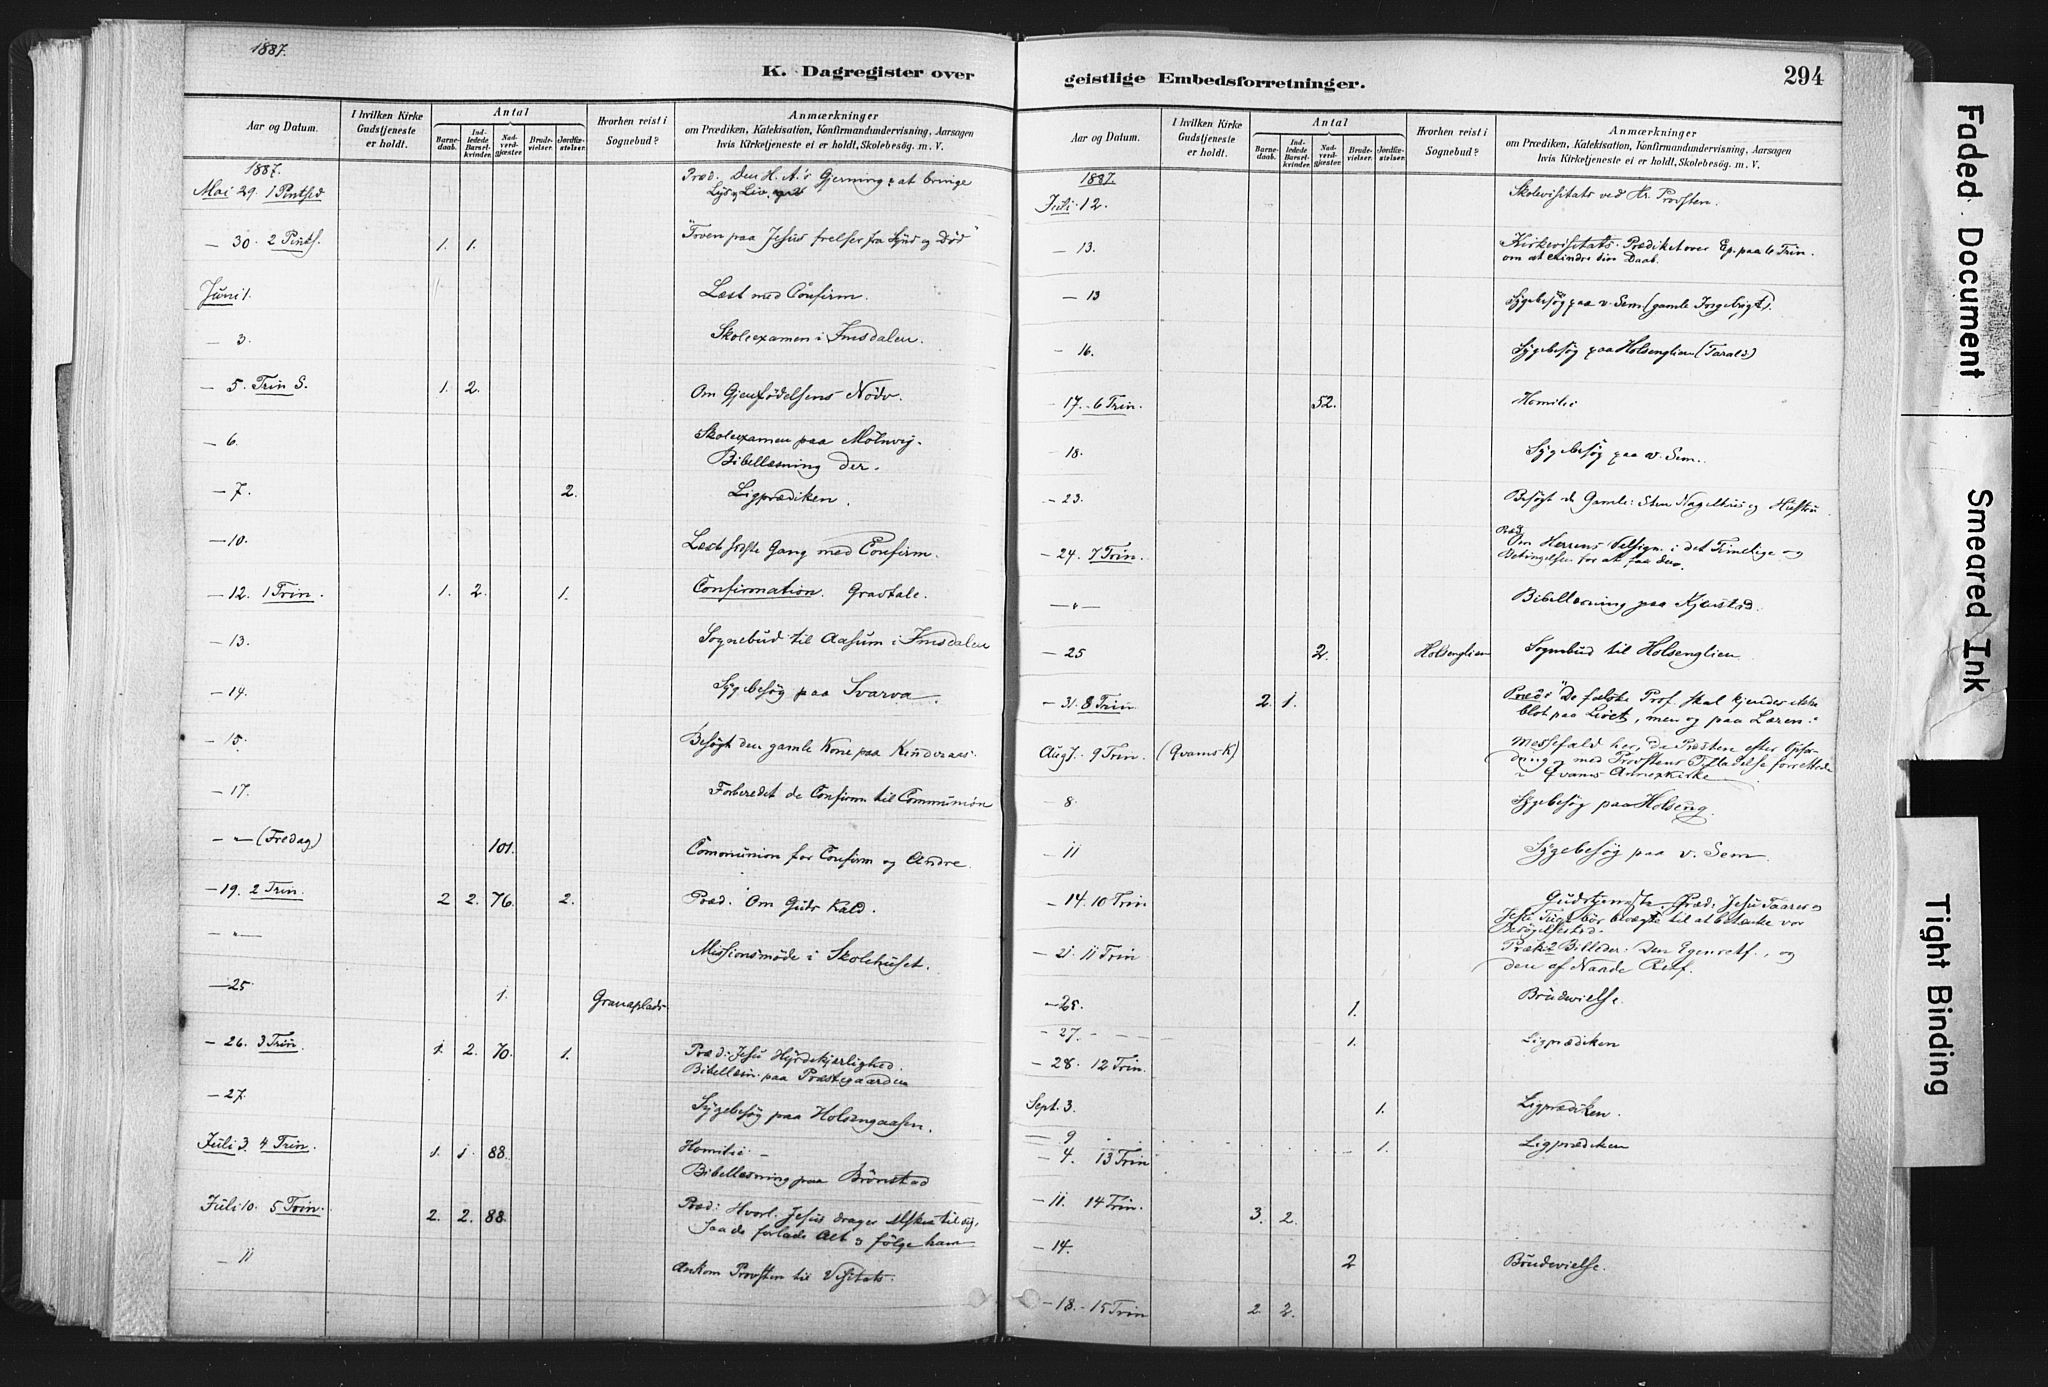 1887.
K. Dagregister over
Aar og Datum.
I hvilken Kirke
Gudstjeneste
er holdt.
Antal
Barne-
daab.
Ind-
ledede
Barsel-
kvinder.
Nad-
verd-
gjæster.
Brude-
vielser.
Jordfæ-
stelser.
Hvorhen reist i
Sognebud?
Anmærkninger
om Prædiken, Katekisation, Konfirmandundervisning, Aarsagen
hvis Kirketjeneste ei er holdt, Skolebesøg. m. V.
1887.
Mai 29. 1 Pintsed Præd. Den H. A.'s Gjerning: at bringe
Lys og Liv.
— 30. 2 Pints. 1. 1. "Troen paa Jesus frelser fra Synd og Død"
Juni 1. Læst med Confirm.
— 3. Skoleexamen i Imsdalen.
— 5. Trin S. 1. 2. Om Gjenfødelsens Nødv.
— 6. Skoleexamen paa Mölnvig.
Bibellæsning der.
— 7. 2. Ligprædiken.
— 10. Læst sidste Gang med Confirm.
— 12. 1 Trin. 1. 2. 1. Confirmation. Gravtale.
— 13. Sognebud til Aasum i Imsdalen
— 14. Sygebesøg paa Svarva.
— 15. Besøgt den gamle Kone paa
— 17. Forberedet de Confirm til Communion
— " — (Fredag) 101. Communion for Confirm og Andre.
— 19. 2 Trin. 2 2. 76. 2. Præd. Om Guds Kald.
— " — Missionsmøde i Skolehuset.
— 25 1. Granaplads.
— 26. 3 Trin. 1. 2. 70. 1. Præd: Jesu Hyrdekjærlighed.
Bibellæsn. paa Præstegaarden
— 27. Sygebesøg paa Holsengaasen.
Juli 3. 4 Trin. 1. 1. 88. Homilie —
Bibellæsning paa Brönstad
Juli 10. 5 Trin. 2. 2. 88. Præd: Hvorl. Jesus drager til sig,
saa de forlade Alt og følge ham
— 11 Ankom Provsten til Visitats.
geistlige Embedsforretninger.
294
Aar og Datum.
I hvilken Kirke
Gudstjeneste
er holdt.
Antal
Barne-
daab.
Ind-
ledede
Barsel-
kvinder.
Nad-
verd-
gjæster.
Brude-
vielser.
Jordfæ-
stelser.
Hvorhen reist i
Sognebud?
Anmærkninger
om Prædiken, Katekisation, Konfirmandundervisning, Aarsagen
hvis Kirketjeneste ei er holdt, Skolebesøg. m. V.
1887.
Juli 12. Skolevisitats ved Hr. Provsten.
— 13. Kirkevisitats. Prædiket over Ep. paa 6 Trin.
om at erindre sin Daab.
— 13 Sygebesøg paa v. Sem (gamle Ingebrigt).
— 16. Sygebesøg paa Holsenglien (Tarald)
— 17. 6 Trin. 52. Homilie
— 18. Sygebesøg paa v. Sem.
— 23. Besøgt de Gamle: Sten Nagelhus og Hustru
— 24. 7 Trin. Præd
Om Herrens Velsign. i det Timelige og
Betingelsen for at faa den.
— " — Bibellæsning paa Kjæstad.
— 25 2. Holsenglien Sognebud til Holsenglien
— 31. 8 Trin 2. 1. Præd: "De falske Prof. skal kjendes ikke
blot paa Livet, men og paa Læren."
Aug 7. 9 Trin. (Qvams K) Messefald her, da Præsten efter Opfor-
dring og med Provstens Tilladelse forrettede
i Qvams Annexkirke
— 8. Sygebesøg paa Holseng.
— 11 Sygebesøg paa v. Sem.
— 14. 10 Trin Gudstjeneste. Præd: Jesu Taarer og
Jesu bør bevæge til at betænke vor
Besøgelsestid.
— 21. 11 Trin 2 Billeder: Den Egenretf., og
den af Naade Retf.
— 25. 1. Brudevielse.
— 27. 1. Ligprædiken
— 28. 12 Trin.
Sept. 3. 1. Ligprædiken.
— 9 1. Ligprædiken
— 4. 13 Trin
— 11 14 Trin. 3. 2.
— 14. 2 Brudevielse.
— 18. 15 Trin 2. 2.
Faded Document
Smeared Ink
Tight Binding